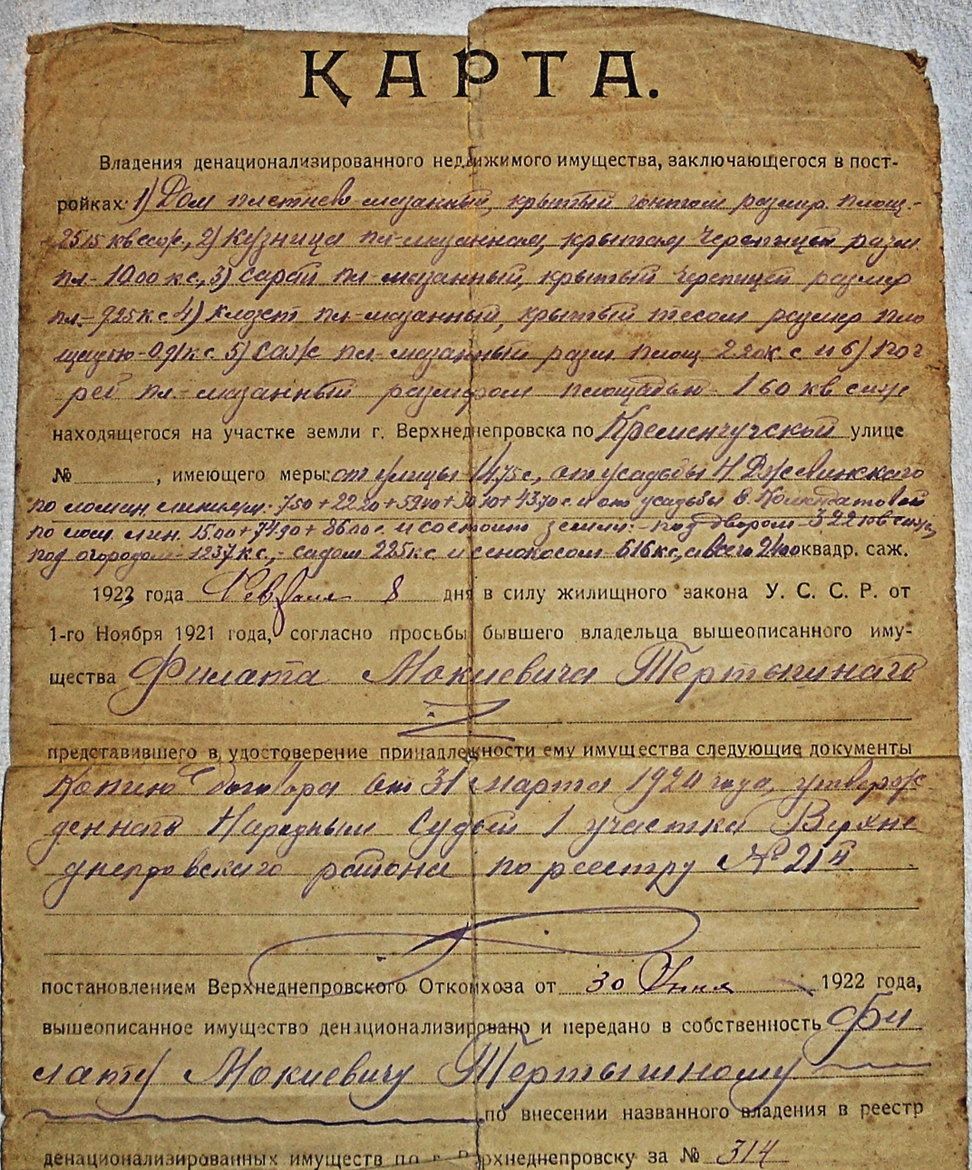 КАРТА.
Владения денационализированного недвижимого имущества, заключающегося в пост-
ройках 1) Дом плетнево мазанный, крытый гонтом размер. площ.-
2515 кв саж, 2) Кузница пл-мазанная, крытая черепицей разм
пл- 10.00 к с, 3) сарай пл-мазанный, крытый черепицей размер
пл.- 9.25 к с 4) клозет пл-мазанный, крытый тесом размер пло
щадью 0.91 к с 5) саж пл-мазанный разм площ 2.20 к с и 6) пог
реб пл-мазанный размером площадью 1 60 кв саж
находящегося на участке земли г. Верхнеднепровска по Кременчугской улице
№ , имеющего меры: от улицы 14.75 с, от усадьбы Н
по лин. 15.00 + 74.90 + 86.00 с и состоит земли: под двором 322 кв саж,
под огородом 1237 к с, садом 225 к с и сенокосом 616 к с, а всего 2400 квадр. саж.
1923 года Февраля 8 дня в силу жилищного закона У. С. С. Р. от
1-го Ноября 1921 года, согласно просьбы бывшего владельца вышеописанного иму-
щества Филата Мокиевича Тертышнаго
представившего в удостоверение принадлежности ему имущества следующие документы
Копию договора от 31 марта 1920 года, утверж
деннаго Народным Судьей 1 участка Верхне
днепровскаго района по реестру № 214.
постановлением Верхнеднепровского Откомхоза от 30 Июня 1922 года,
вышеописанное имущество денационализировано и передано в собственность Фи
лату Мокиевичу Тертышному
по внесении названного владения в реестр
денационализированных имуществ по г. Верхнеднепровску за № 314